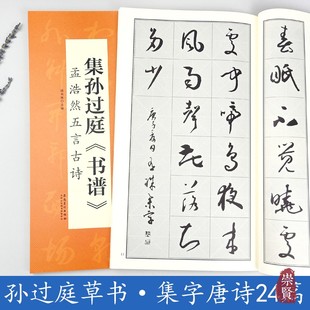 集孙过庭《书谱》
孟浩然五言古诗
春眠不觉晓处
处闻啼鸟夜来
风雨声花落知
多少
孙过庭草书·集字唐诗24篇
崇贤